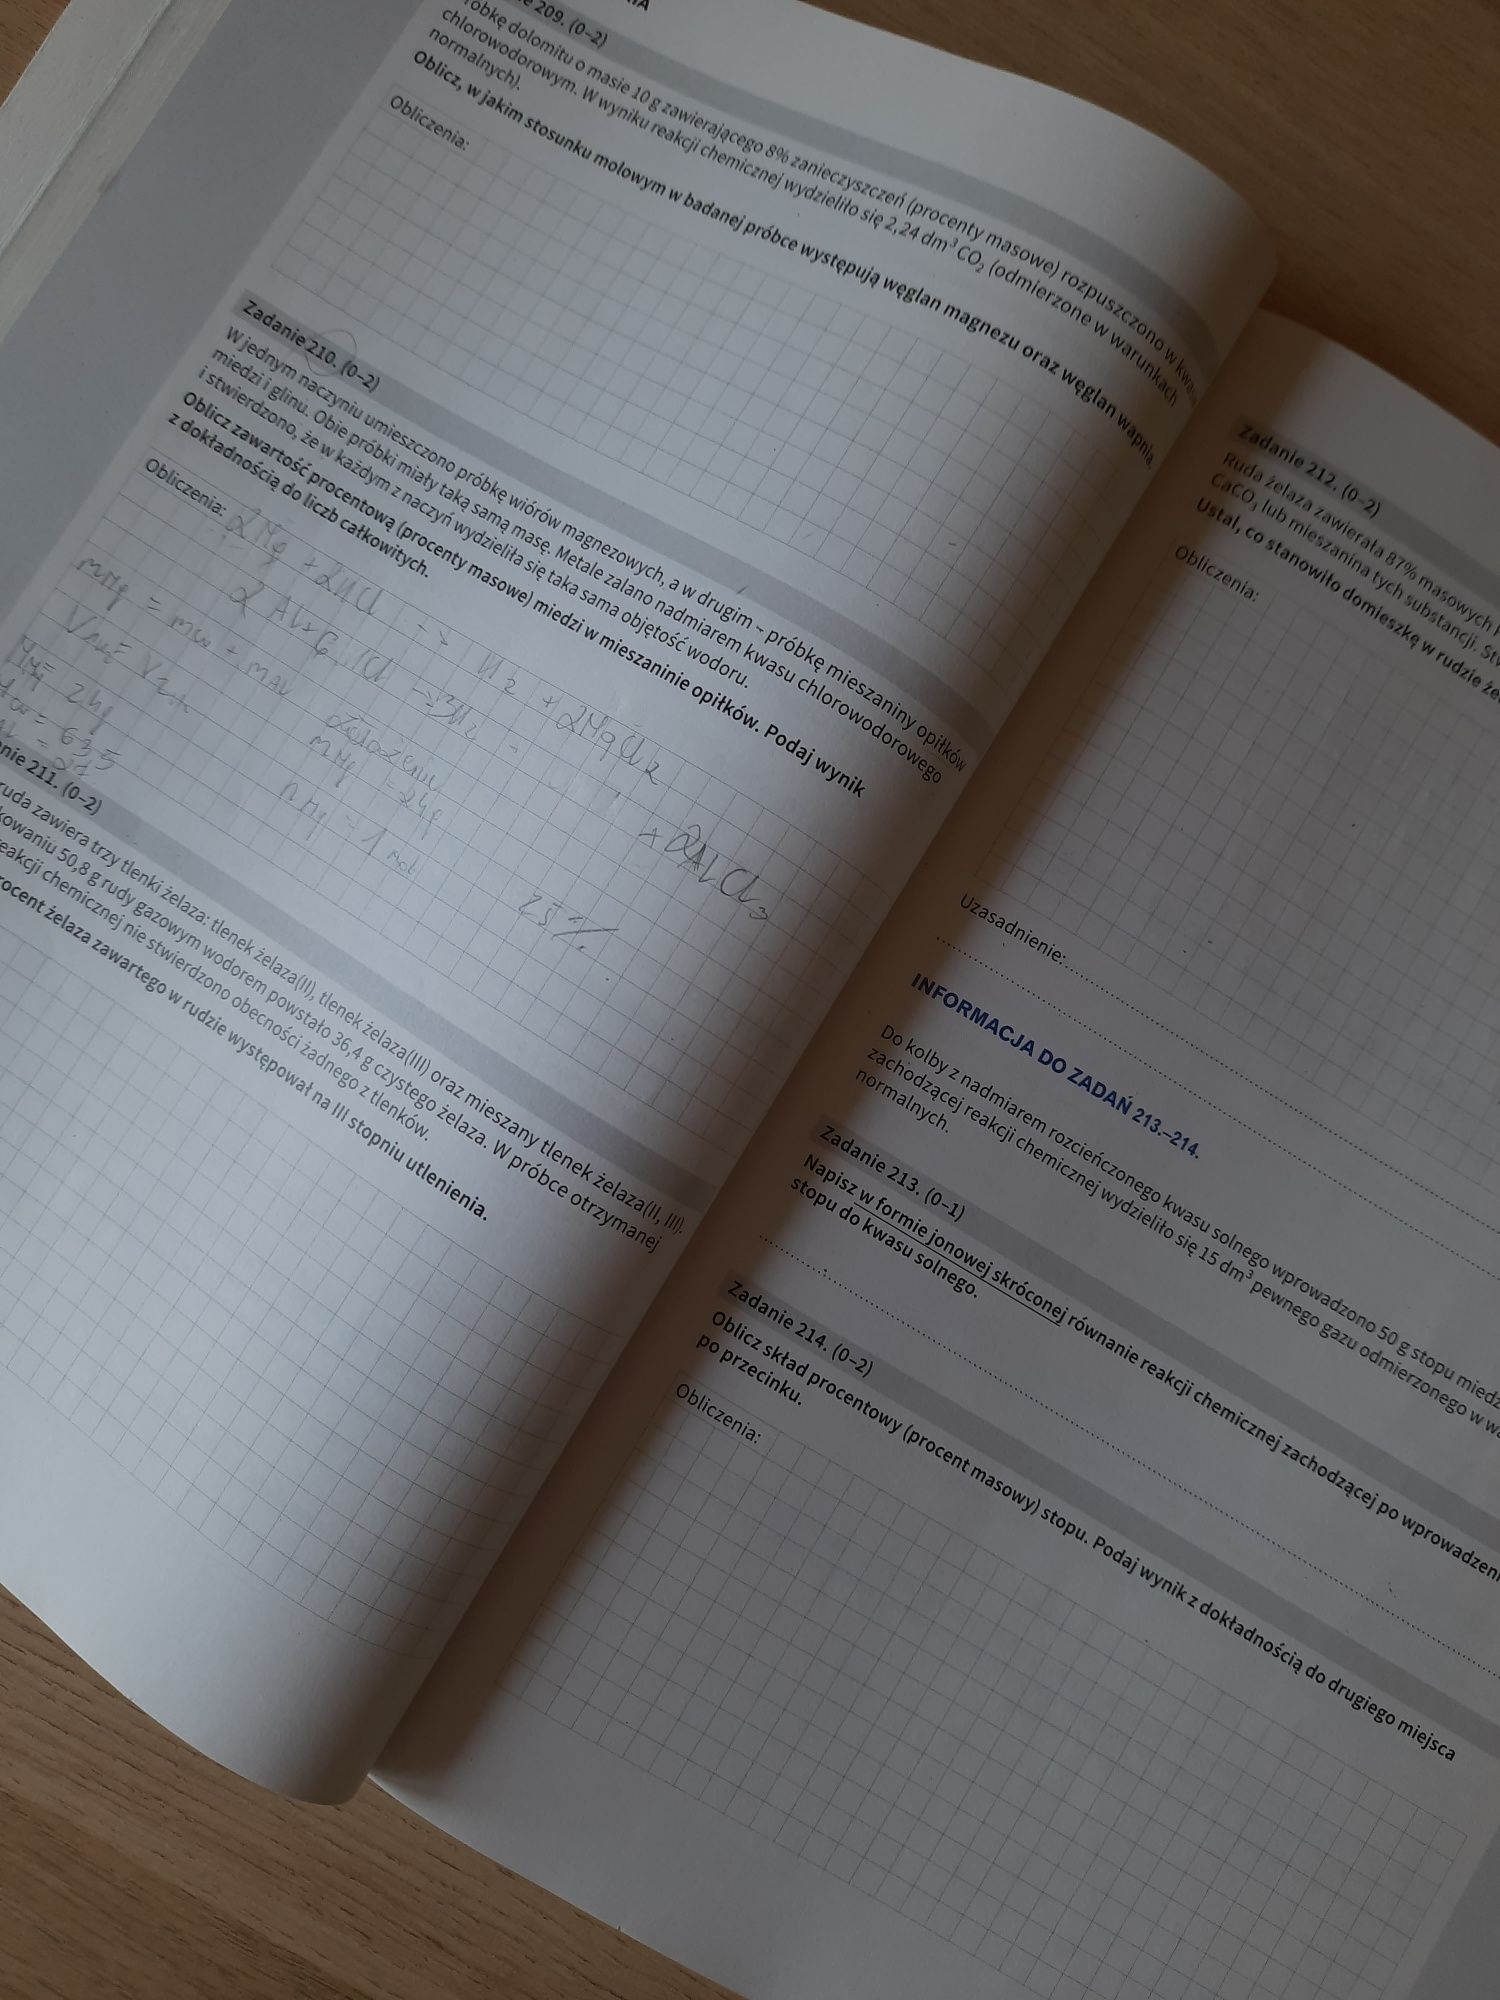 209. (0–2)
dolomitu o masie 10 g zawierającego 8% zanieczyszczeń (procenty masowe) rozpuszczono w
chlorowodorowym. W wyniku reakcji chemicznej wydzieliło się 2,24 dm³ CO₂ (odmierzone w warunkach
normalnych).
Oblicz, w jakim stosunku molowym w badanej próbce występują węglan magnezu oraz węglan wapnia.
Obliczenia:
Zadanie 210. (0–2)
W jednym naczyniu umieszczono próbkę wiórów magnezowych, a w drugim – próbkę mieszaniny opiłków
miedzi i glinu. Obie próbki miały taką samą masę. Metale zalano nadmiarem kwasu chlorowodorowego
i stwierdzono, że w każdym z naczyń wydzieliła się taka sama objętość wodoru.
Oblicz zawartość procentową (procenty masowe) miedzi w mieszaninie opiłków. Podaj wynik
z dokładnością do liczb całkowitych.
Obliczenia:
2Mg + 2HCl → H2 + 2MgCl2
2Al + 6HCl → 3H2 + 2AlCl3
mMg = mCu + mAl
założenie
mMg = 24g
nMg = 1 mol
25%
63,5
211. (0–2)
ruda zawiera trzy tlenki żelaza: tlenek żelaza(II), tlenek żelaza(III) oraz mieszany tlenek żelaza(II, III).
50,8 g rudy gazowym wodorem powstało 36,4 g czystego żelaza. W próbce otrzymanej
reakcji chemicznej nie stwierdzono obecności żadnego z tlenków.
żelaza zawartego w rudzie występował na III stopniu utlenienia.
Zadanie 212. (0–2)
Ruda żelaza zawierała 87% masowych
CaCO₃ lub mieszanina tych substancji.
Ustal, co stanowiło domieszkę w rudzie
Obliczenia:
Uzasadnienie:
INFORMACJA DO ZADAŃ 213.–214.
Do kolby z nadmiarem rozcieńczonego kwasu solnego wprowadzono 50 g stopu
zachodzącej reakcji chemicznej wydzieliło się 15 dm³ pewnego gazu odmierzonego w
normalnych.
Zadanie 213. (0–1)
Napisz w formie jonowej skróconej równanie reakcji chemicznej zachodzącej po
stopu do kwasu solnego.
Zadanie 214. (0–2)
Oblicz skład procentowy (procent masowy) stopu. Podaj wynik z dokładnością do drugiego miejsca
po przecinku.
Obliczenia: